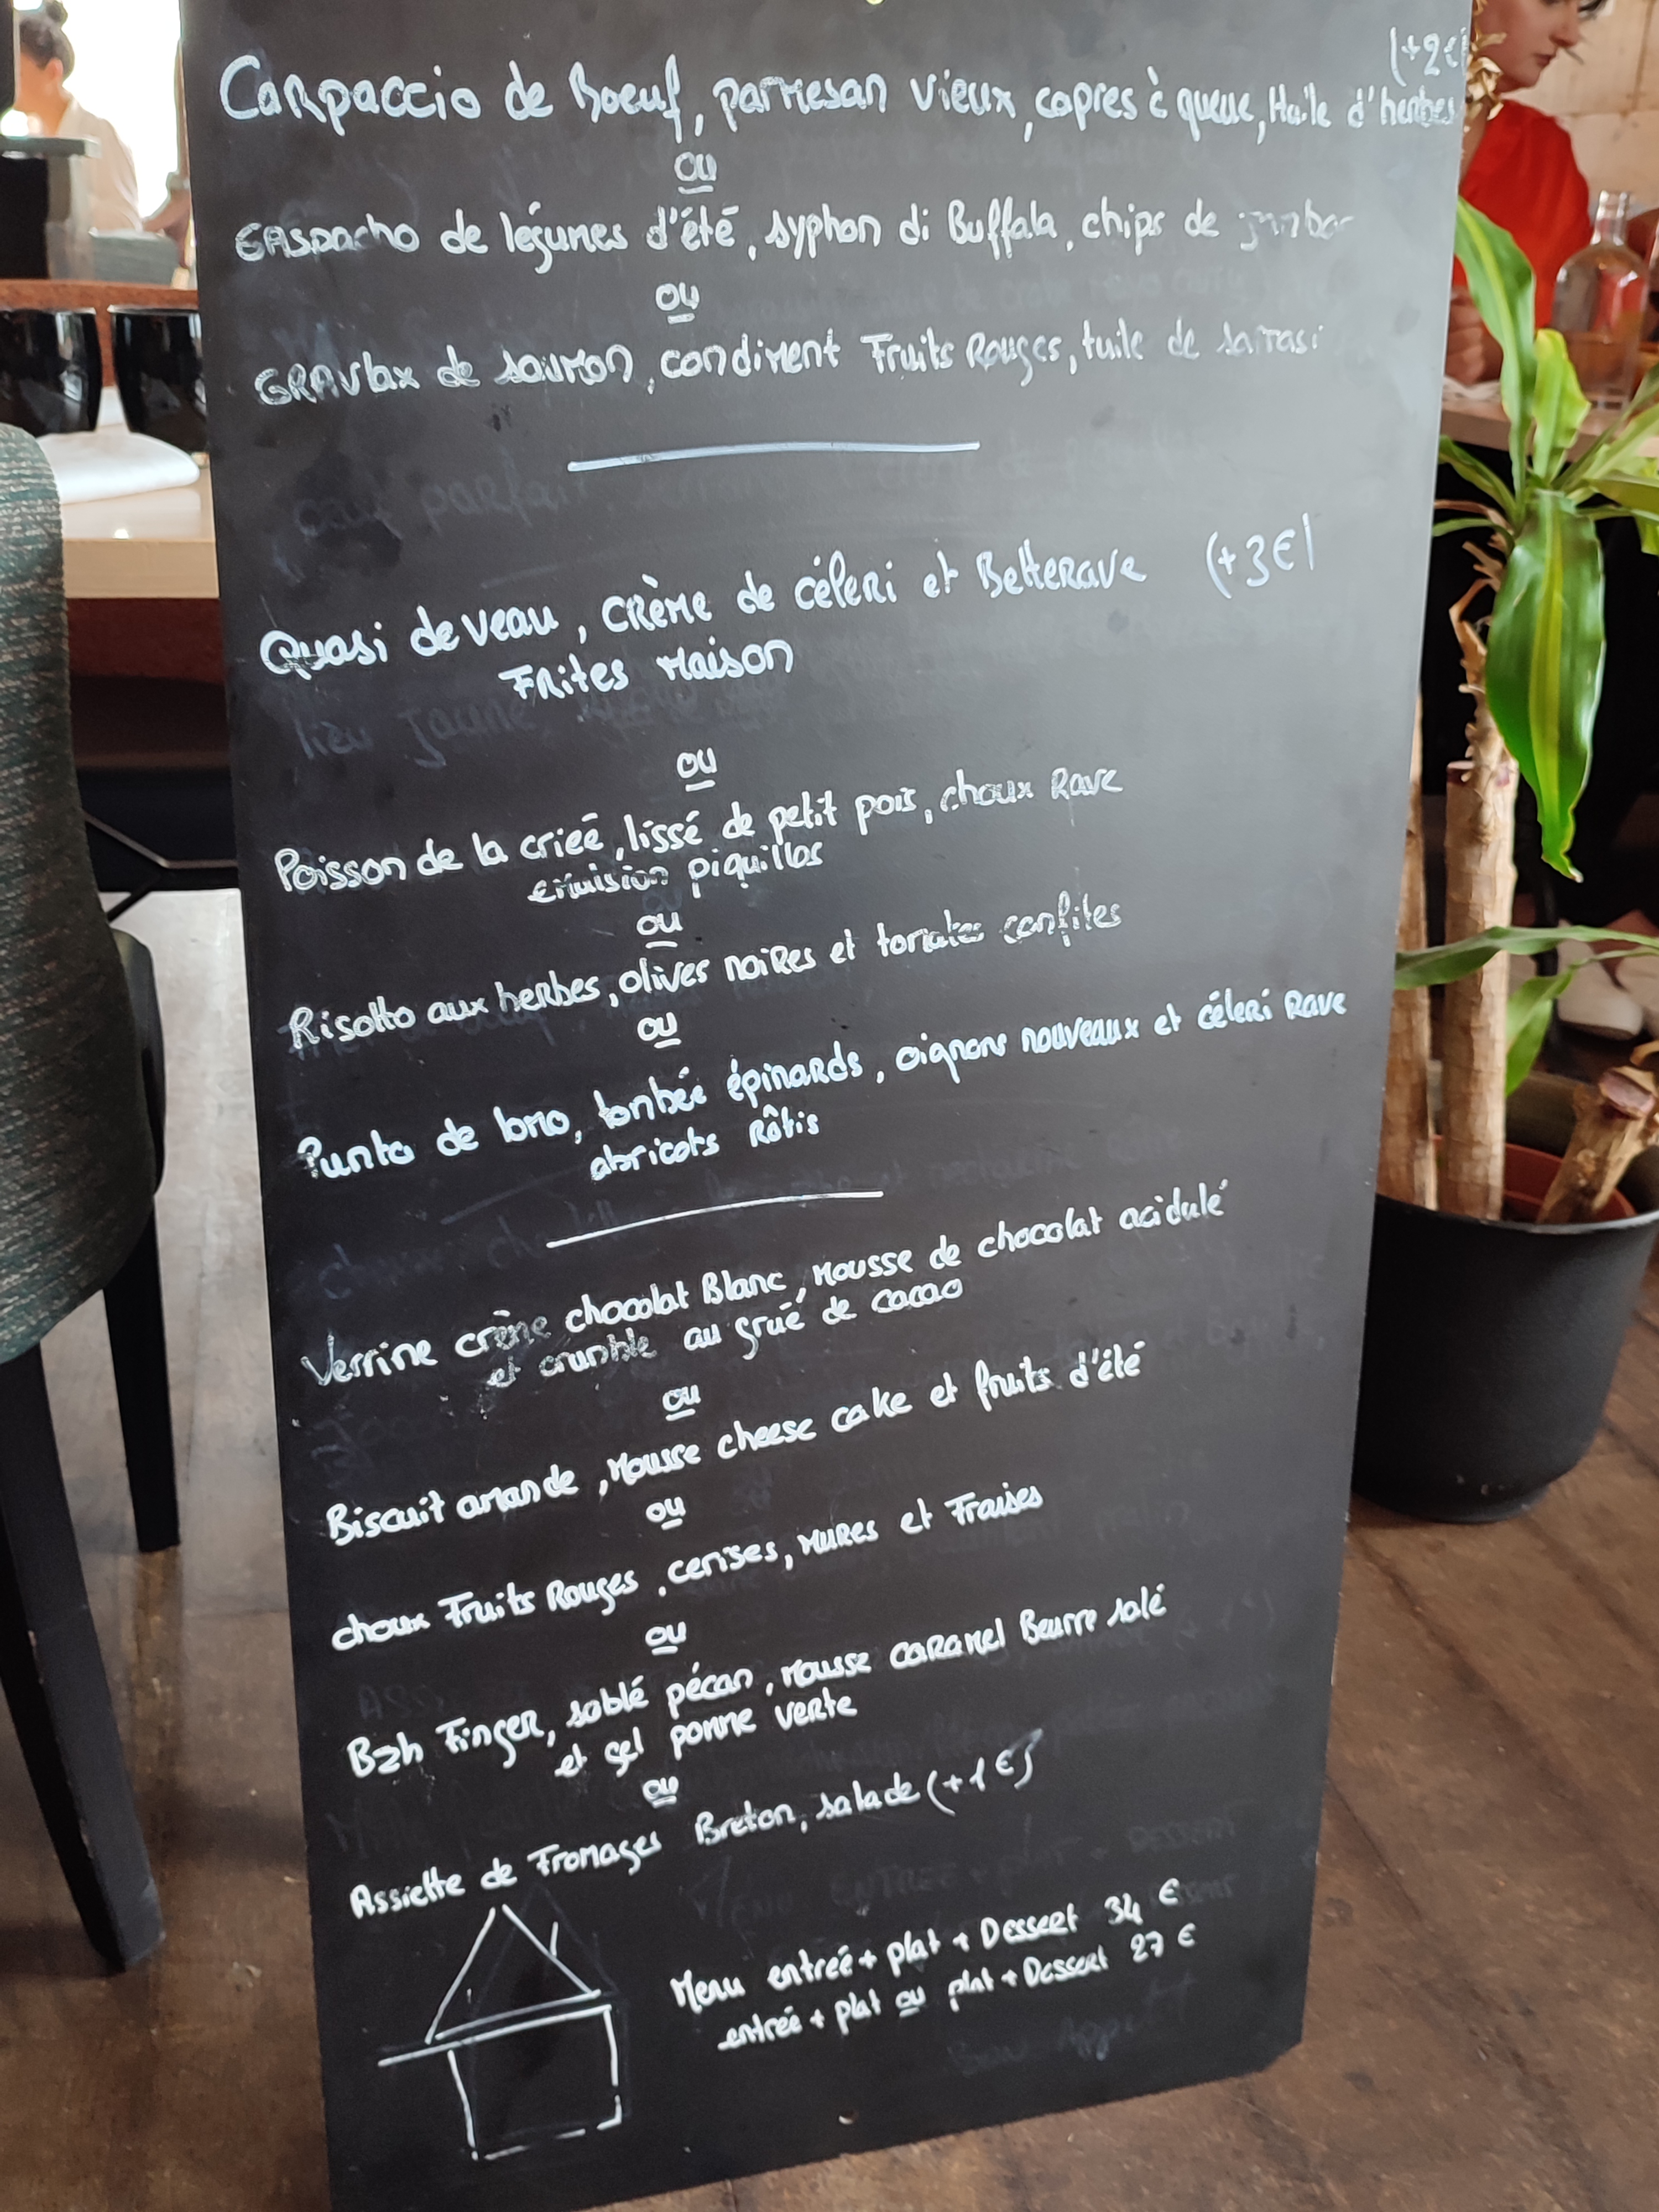 (+2€)
Carpaccio de Boeuf, parmesan vieux, capres à queue, Huile d'herbes
ou
Gaspacho de légumes d'été, syphon di Buffala, chips de jambon
ou
Gravlax de saumon, condiment Fruits Rouges, tuile de sarrasi
Quasi de veau, crème de céleri et Betterave (+3€)
Frites Maison
ou
Poisson de la crieé, lissé de petit pois, choux Rave
emulsion piquillos
ou
Risotto aux herbes, olives noires et tomates confites
ou
Punto de lomo, tombée épinards, oignons nouveaux et céleri Rave
abricots Rôtis
Verrine crème chocolat Blanc, Mousse de chocolat acidulé
et crumble au grué de cacao
ou
Biscuit amande, Mousse cheese cake et fruits d'été
ou
choux Fruits Rouges, cerises, Mures et Fraises
ou
Bzh Finger, sablé pécan, mousse caramel Beurre salé
et gel pomme verte
ou
Assiette de Fromages Breton, salade (+1€)
Menu entreé + plat + Dessert 34 €
entrée + plat ou plat + Dessert 27 €